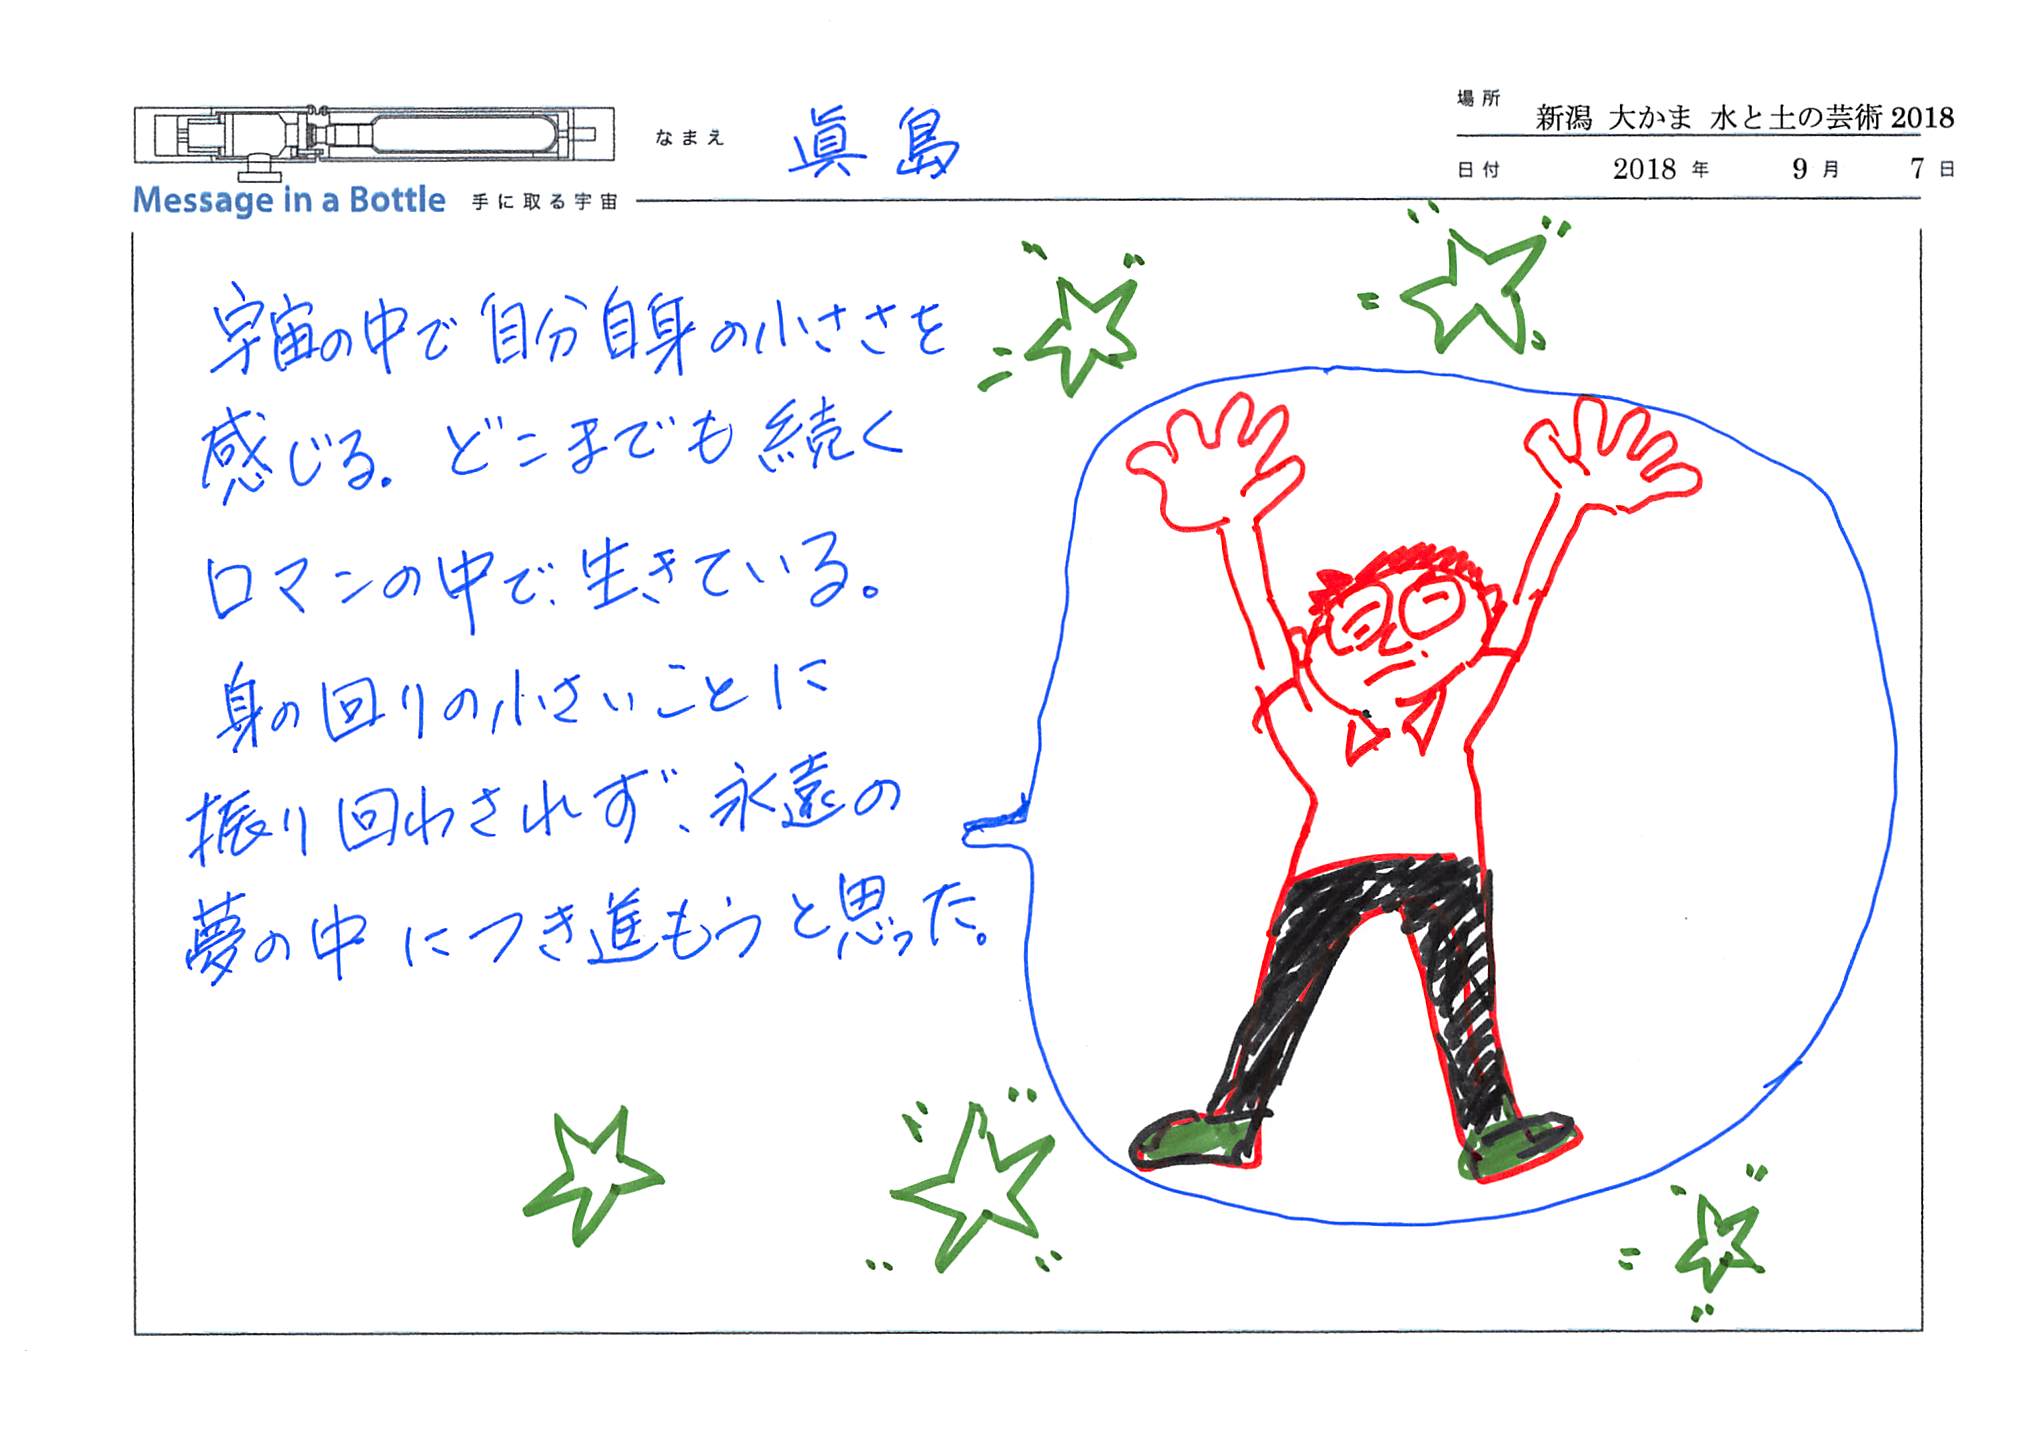 場所 新潟 大かま 水と土の芸術2018
なまえ 眞島
日付 2018年 9月 7日
Message in a Bottle 手に取る宇宙
宇宙の中で自分自身の小ささを
感じる。どこまでも続く
ロマンの中で、生きている。
身の回りの小さいことに
振り回わされず、永遠の
夢の中につき進もうと思った。